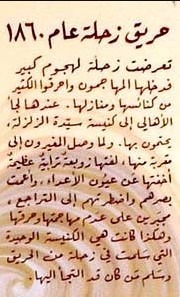 حريق زحلة عام ١٨٦٠
تعرضت زحلة لهجوم كبير
فدخلها المهاجمون وأحرقوا الكثير
من كنائسها ومنازلها. عندها لجأ
الأهالي إلى كنيسة سيّدة الزلزلة،
يحتمون بها. ولما وصل المغيرون إلى
مقربة منها، لفتها زوبعة ترابيّة عظيمة
أخفتها عن عيون الأعداء، وأعمت
بصرهم واضطرتهم إلى التراجع،
مجبرين على عدم مهاجمتها وحرقها
وهكذا كانت هي الكنيسة الوحيدة
التي سلمت في زحلة من الحريق
وسلم من كان قد التجأ إليها.